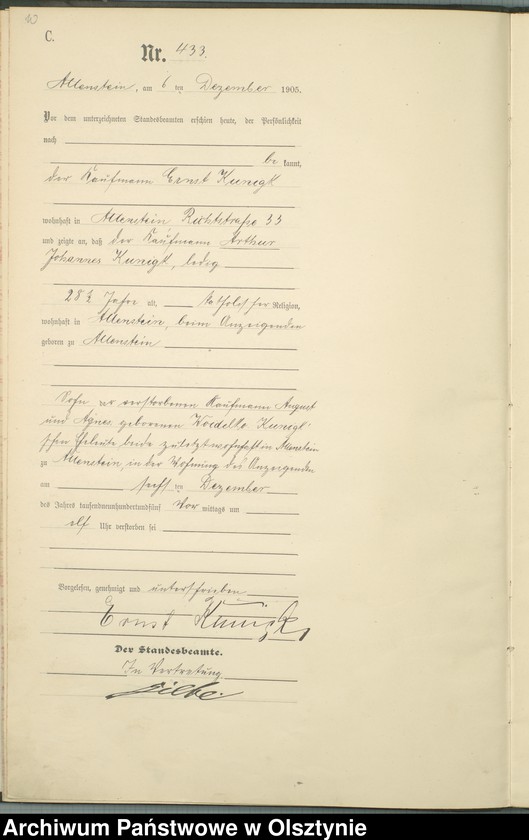 C.
Nr. 433.
Allenstein, am 6 ten Dezember 1905.
Vor dem unterzeichneten Standesbeamten erschien heute, der Persönlichkeit
nach
be kannt,
der Kaufmann Ernst Kunigk
wohnhaft in Allenstein Richtstraße 33
und zeigte an, daß der Kaufmann Arthur
Johannes Kunigk, ledig
28½ Jahre alt, katholischer Religion,
wohnhaft in Allenstein, beim Anzeigenden
geboren zu Allenstein
Sohn der verstorbenen Kaufmann August
und Agnes geborenen Kunigk'
schen Eheleute beide zuletzt wohnhaft in Allenstein
zu Allenstein, in der Wohnung des Anzeigenden
am sechs ten Dezember
des Jahres tausendneunhundertundfünf Vor mittags um
elf Uhr verstorben sei
Vorgelesen, genehmigt und unterschrieben
Ernst Kunigk
Der Standesbeamte.
In Vertretung
Archiwum Państwowe w Olsztynie